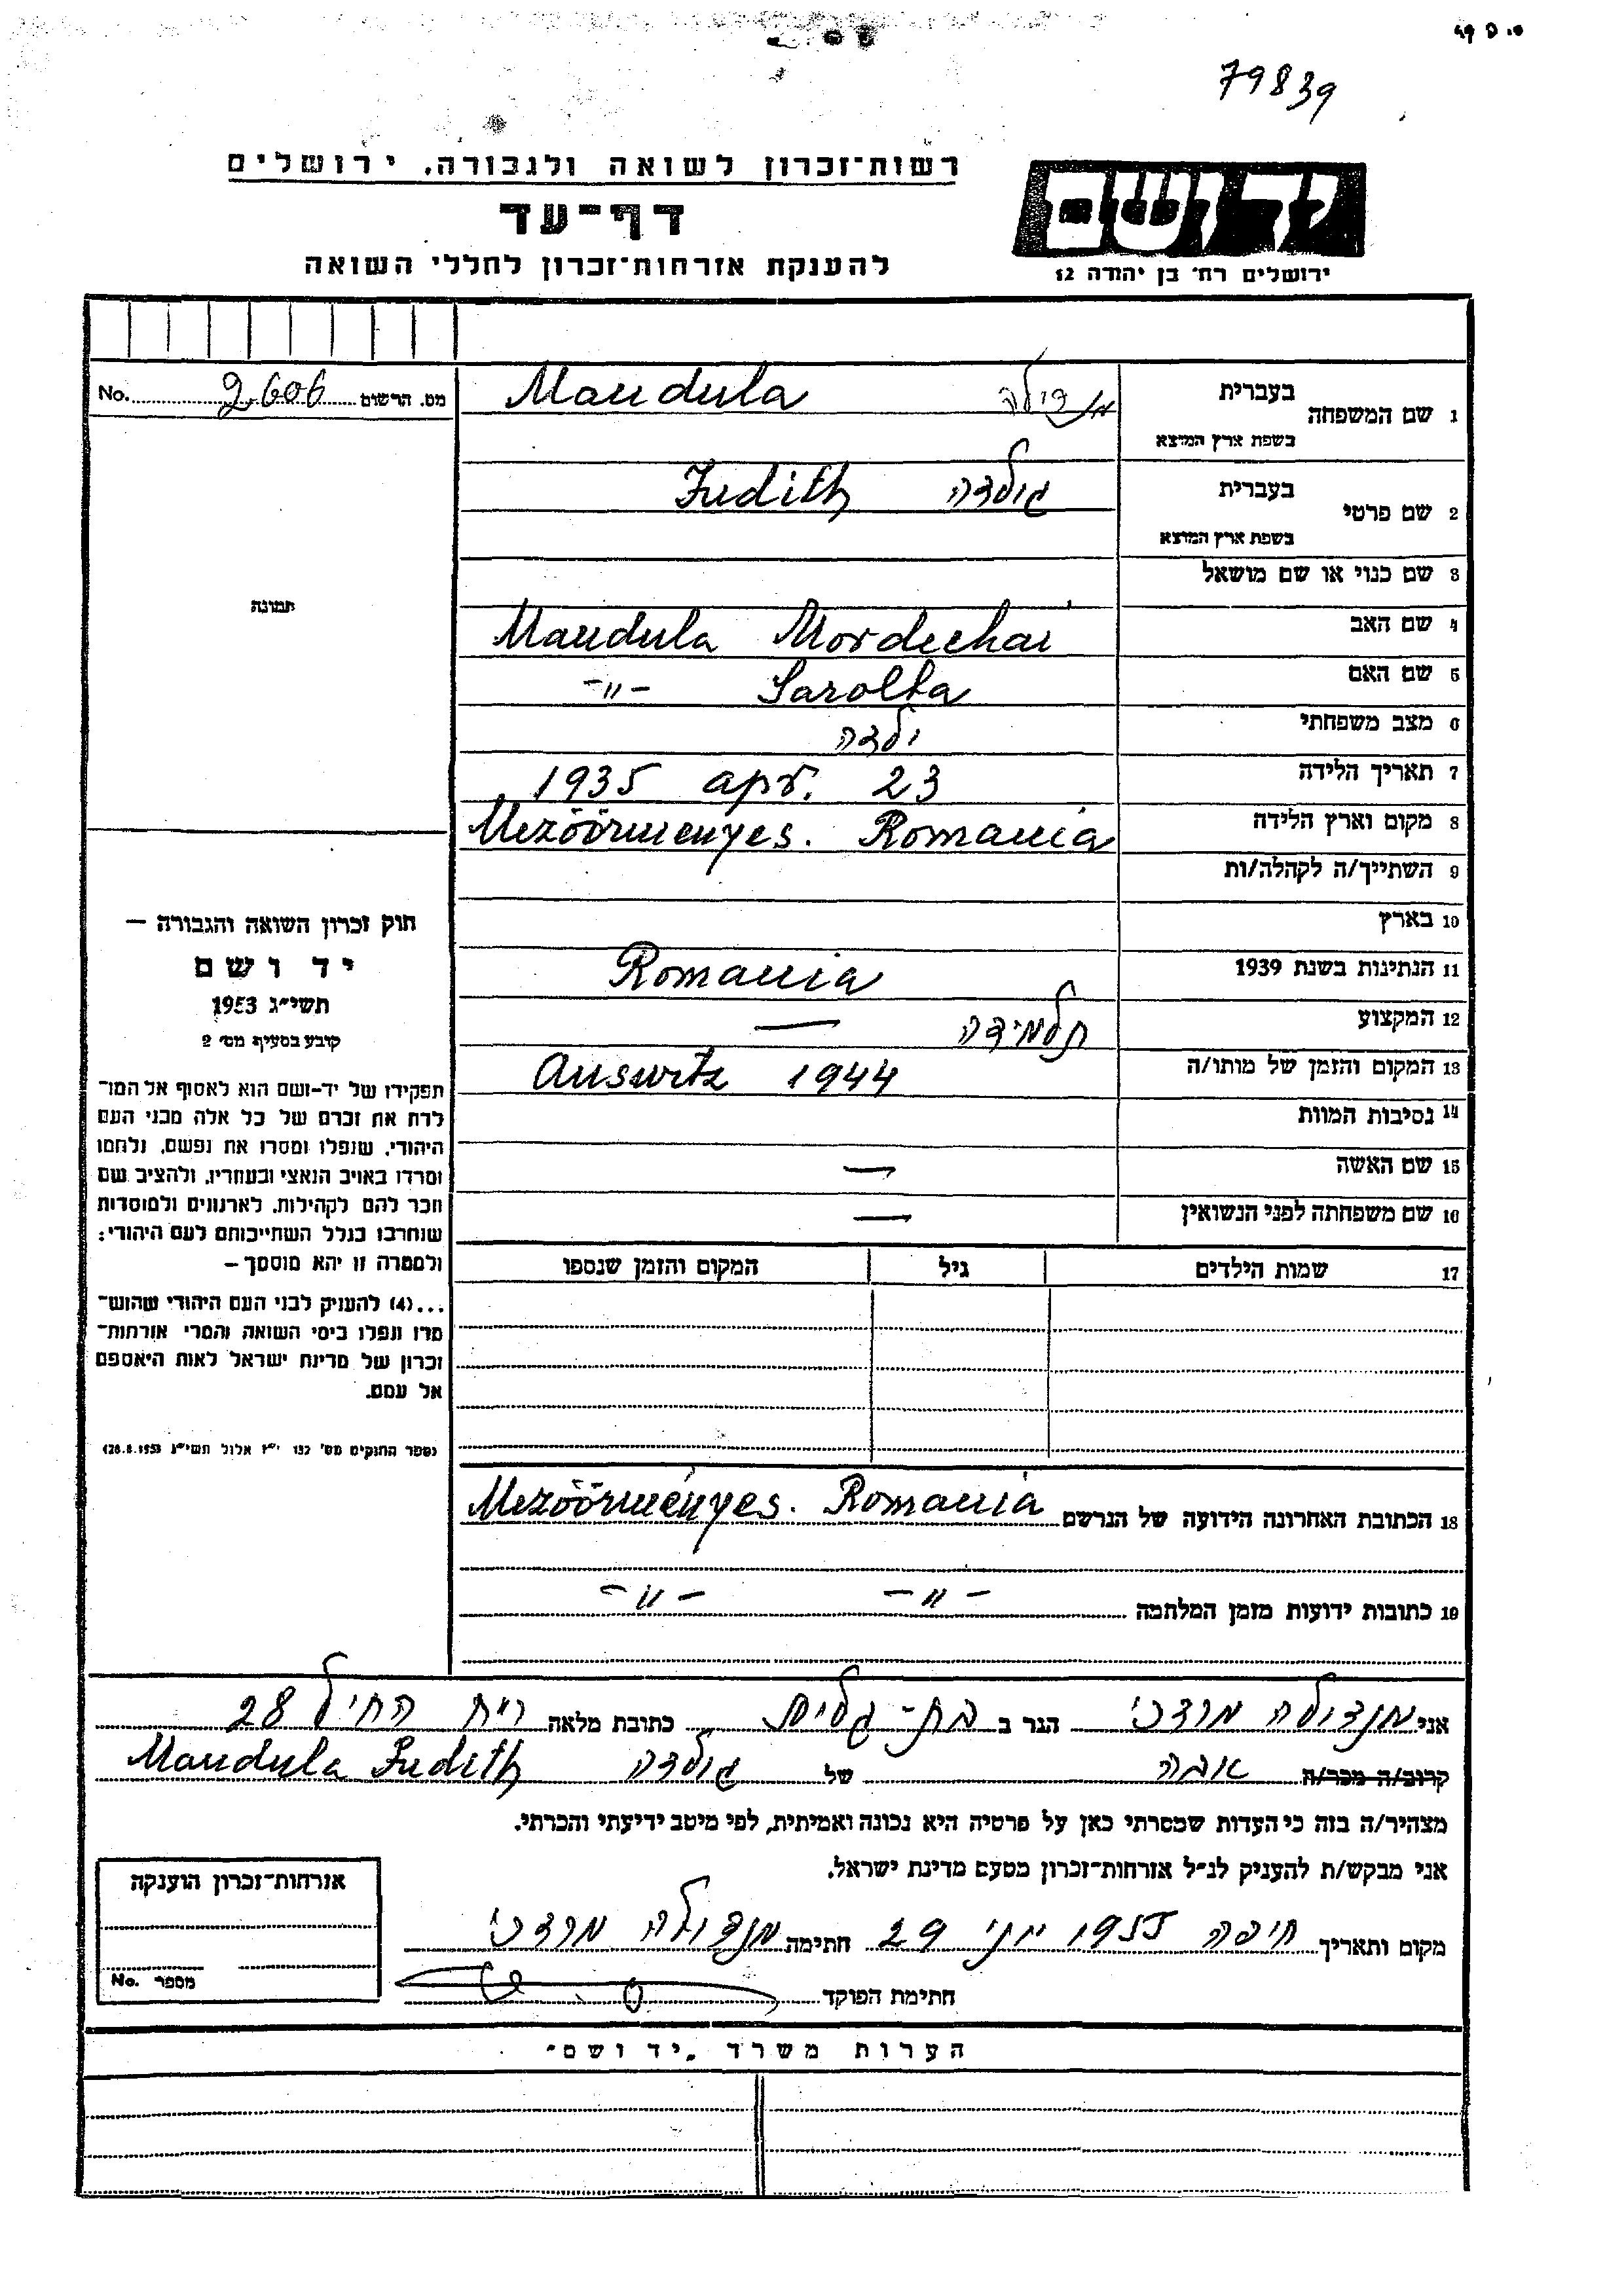 79839
רשות־זכרון לשואה ולגבורה, ירושלים
יד ושם
דף־עד
להענקת אזרחות־זכרון לחללי השואה
ירושלים רח׳ בן יהודה 12
No. 2606 מס. הרשום
1 שם המשפחה בעברית מנדולה Mandula
בשפת ארץ המוצא
2 שם פרטי בעברית גולדה Judith
בשפת ארץ המוצא
3 שם כנוי או שם מושאל
תמונה
4 שם האב Mandula Mordechai
5 שם האם Sarolta -"-
6 מצב משפחתי ילדה
7 תאריך הלידה 1935 apr. 23
8 מקום וארץ הלידה Mezöörményes. Romania
9 השתייך/ה לקהלה/ות
10 בארץ
11 הנתינות בשנת 1939 Romania
12 המקצוע תלמידה —
13 המקום והזמן של מותו/ה Auswitz 1944
14 נסיבות המוות
15 שם האשה —
16 שם משפחתה לפני הנשואין —
17 שמות הילדים גיל המקום והזמן שנספו
חוק זכרון השואה והגבורה —
יד ושם
תשי״ג 1953
קובע בסעיף מס׳ 2
תפקידו של יד-ושם הוא לאסוף אל המו־
לדת את זכרם של כל אלה מבני העם
היהודי, שנפלו ומסרו את נפשם, נלחמו
ומרדו באויב הנאצי ובעוזריו, ולהציב שם
וזכר להם לקהילות, לארגונים ולמוסדות
שנחרבו בגלל השתייכותם לעם היהודי:
ולמטרה זו יהא מוסמך –
...(4) להעניק לבני העם היהודי שהוש־
מדו ונפלו בימי השואה והמרי אזרחות־
זכרון של מדינת ישראל לאות היאספם
אל עמם.
(ספר החוקים מס׳ 132 י״ז אלול תשי״ג 28.8.1953)
18 הכתובת האחרונה הידועה של הנרשם Mezöörményes. Romania
19 כתובות ידועות מזמן המלחמה -"- -"-
אני מנדולה מרדכי הגר ב בת-גלים כתובת מלאה רח החיל 28
קרוב/ה מכר/ה אבה של גולדה Mandula Judith
מצהיר/ה בזה כי העדות שמסרתי כאן על פרטיה היא נכונה ואמיתית, לפי מיטב ידיעתי והכרתי.
אני מבקש/ת להעניק לנ״ל אזרחות־זכרון מטעם מדינת ישראל.
מקום ותאריך חיפה 1955 יוני 29 חתימה מנדולה מרדכי
חתימת הפוקד
אזרחות־זכרון הוענקה
מספר No.
הערות משרד „יד ושם״